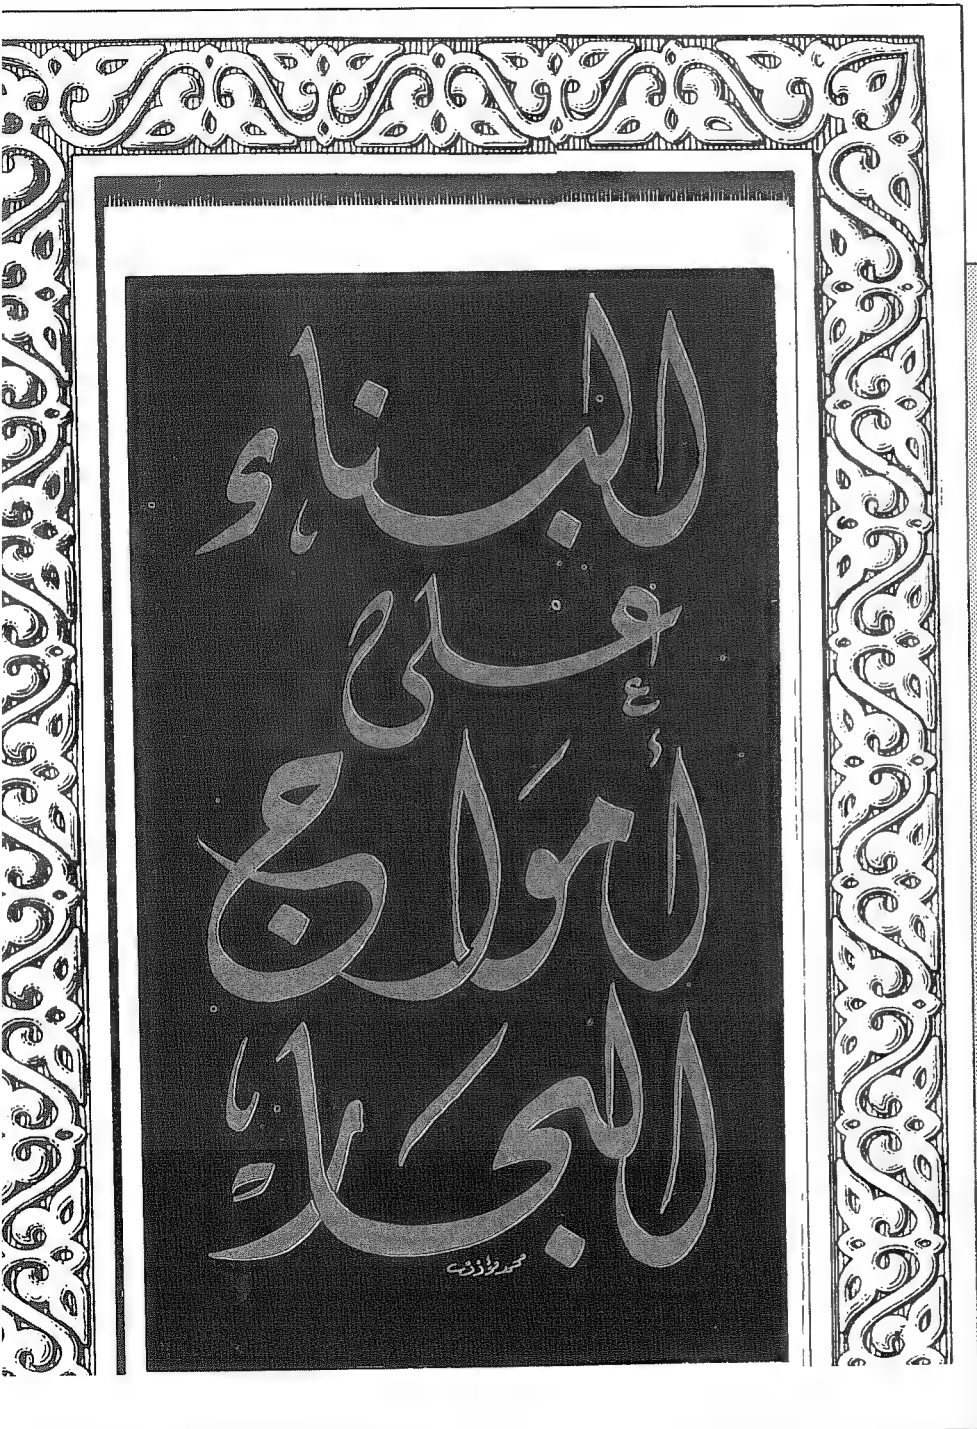 البناء
على
أمواج
البحار